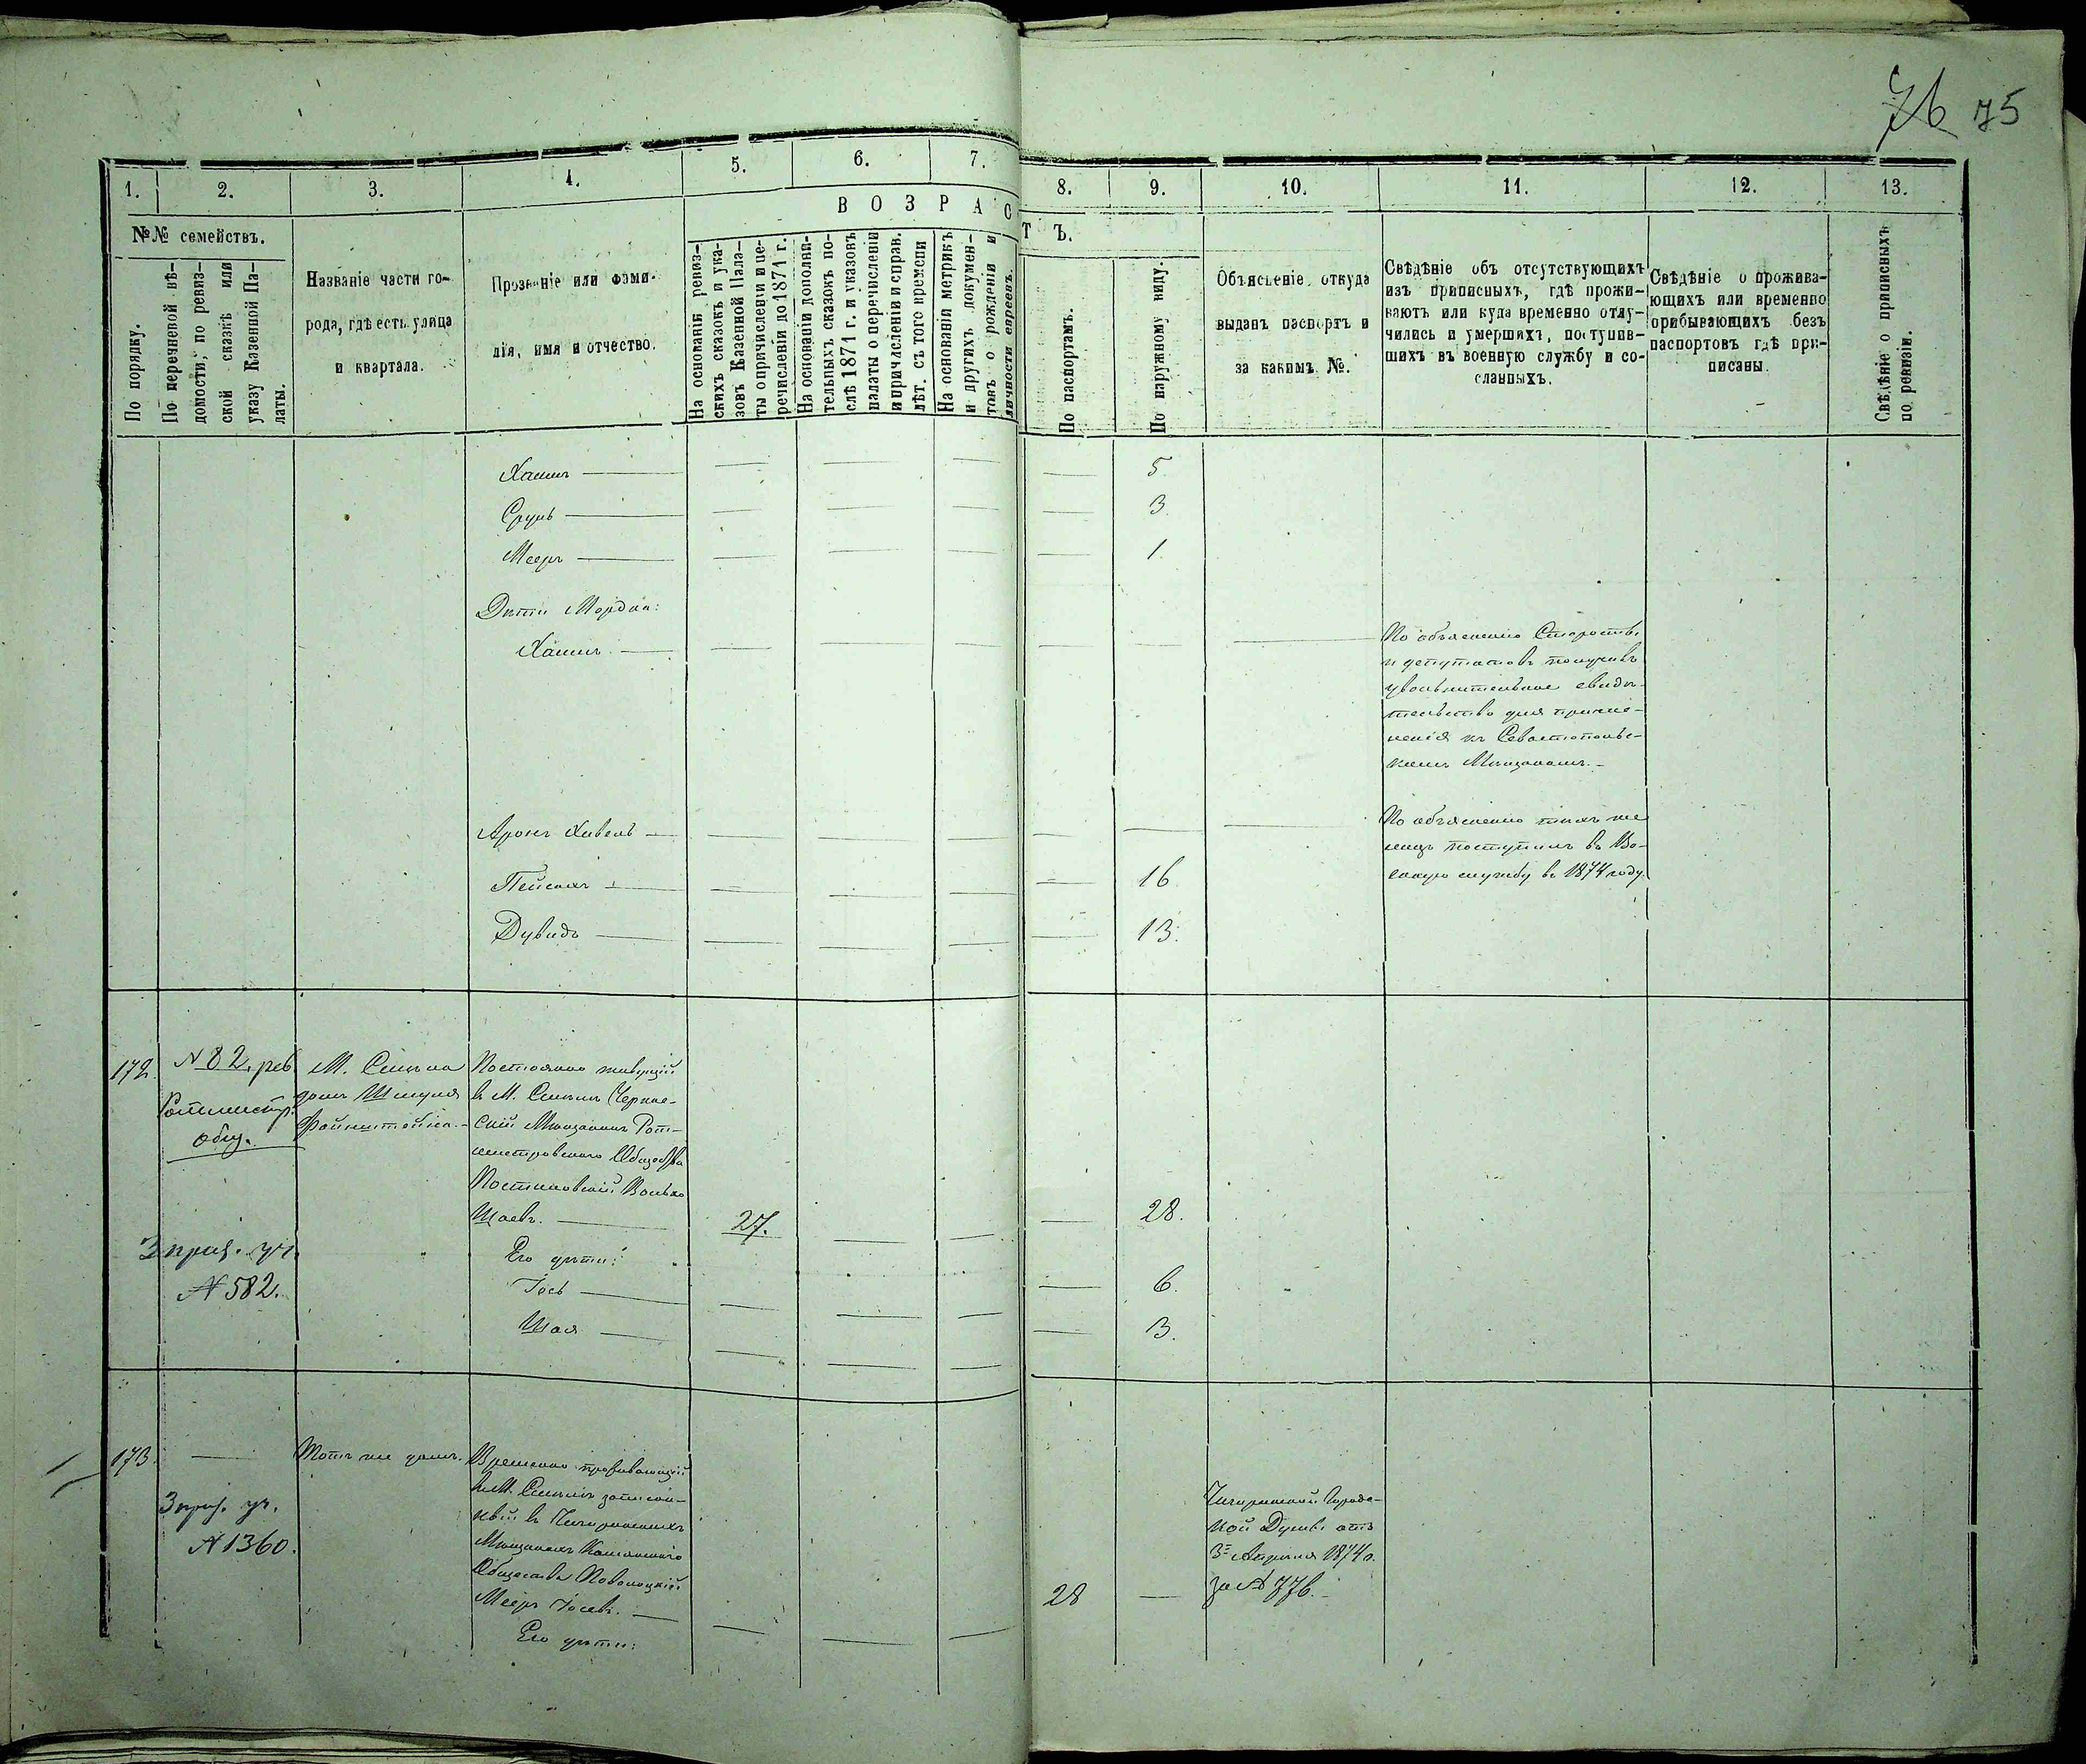 76 75
1. 2. 3. 4. 5. 6. 7. 8. 9. 10. 11. 12. 13.
№№ семействъ.
В О З Р А С Т Ъ.
По порядку.
По перечневой вѣ-
домости, по ревиз-
ской сказкѣ или
указу Казенной Па-
латы.
Названіе части го-
рода, гдѣ есть улица
и квартала.
Прозваніе или фами-
лія, имя и отчество.
На основаніи ревиз-
скихъ сказокъ и ука-
зовъ Казенной Пала-
ты о причисленіи и пе-
речисленіи до 1871 г.
На основаніи дополни-
тельныхъ сказокъ по-
слѣ 1871 г. и указовъ
палаты о перечисленіи
и причисленіи и справ.
лѣт. съ того времени
На основаніи метрикъ
и другихъ докумен-
товъ о рожденіи и
личности евреевъ.
По паспортамъ.
По наружному виду.
Объясненіе откуда
выданъ паспортъ и
за какимъ №.
Свѣдѣніе объ отсутствующихъ
изъ приписныхъ, гдѣ прожи-
ваютъ или куда временно отлу-
чились и умершихъ, поступив-
шихъ въ военную службу и со-
сланныхъ.
Свѣдѣніе о прожива-
ющихъ или временно
прибывающихъ безъ
паспортовъ гдѣ при-
писаны.
Свѣдѣніе о приписныхъ
по ревизіи.
Хаимъ — — — — — 5.
Сруль — — — — — 3.
Мееръ — — — — — 1.
Дѣти Мордка:
Хаимъ — — — — — — —
По объясненію Старосты
и депутатовъ получивъ
увольнительное свидѣ-
тельство для причис-
ленія къ Севастопольс-
кимъ Мѣщанамъ.-
Аронъ Хивель — — — — — — —
По объясненію тѣхъ же
лицъ поступилъ въ Во-
енную службу въ 1874 году.
Пейсахъ — — — — — 16
Дувидъ — — — — — 13.
172.
№ 82. рев.
Ротмистр.
общ.
3 приз. уч.
№ 582.
М. Смѣла
домъ Шмуля
Файнштейна.-
Постоянно живущій
въ М. Смѣлѣ Черкас-
скій Мѣщанинъ Рот-
мистровскаго Общества
Волько
Шаевъ. — 27. — — — 28.
Его дѣти:
Іось — — — — — 6.
Шая — — — — — 3.
173. —
3 приз. уч.
№ 1360.
Тотъ же домъ.
Временно проживающій
въ М. Смѣлѣ записан-
ный въ Чигиринскихъ
Мѣщанахъ Каменскаго
Общества Новоцкій
Мееръ Іосевъ. — — — — 28 —
Его дѣти:
Чигиринской Городс-
кой Думы отъ
3го Апрѣля 1874 г.
за № 776.-